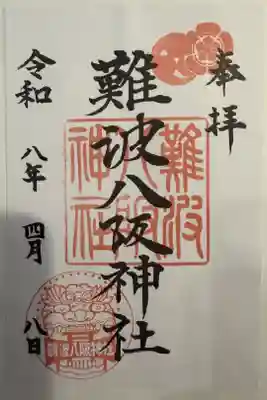 奉拝
難波八阪神社
難波八阪神社
令和八年四月八日
難波八阪神社